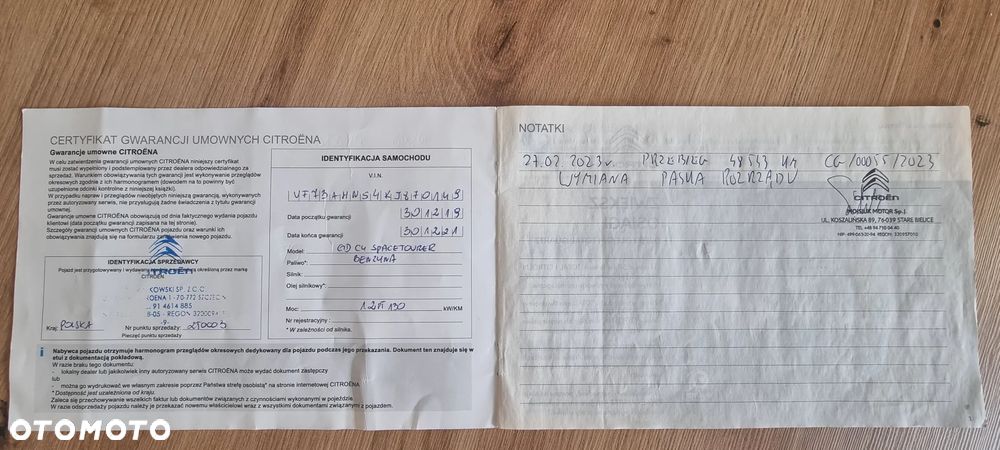 CERTYFIKAT GWARANCJI UMOWNYCH CITROËNA
Gwarancje umowne CITROËNA
W celu zatwierdzenia gwarancji umownych CITROËNA niniejszy certyfikat
musi zostać wypełniony i podstemplowany przez dealera odpowiedzialnego za
sprzedaż. Warunkiem obowiązywania tych gwarancji jest wykonywanie przeglądów
okresowych zgodnie z ich harmonogramem (dowodem na to powinny być
uzupełnione odcinki kontrolne z niniejszej książki).
W przypadku napraw i przeglądów nieobjętych niniejszą gwarancją, wykonywanych
przez autoryzowany serwis, nie przysługują żadne świadczenia z tytułu gwarancji
umownej.
Gwarancje umowne CITROËNA obowiązują od dnia faktycznego wydania pojazdu
klientowi (data początku gwarancji zapisana na tej stronie).
Szczegóły gwarancji umownych CITROËNA pojazdu oraz warunki ich
obowiązywania znajdują się na formularzu zamówienia nowego pojazdu.
IDENTYFIKACJA SPRZEDAWCY
Pojazd jest przygotowywany i wydawany określoną przez markę
CITROËN
CITROËN
KOWSKI SP. Z O.O.
70-772 SZCZECIN
91 4614 885
Kraj: POLSKA Nr punktu sprzedaży:
Pieczęć punktu sprzedaży
IDENTYFIKACJA SAMOCHODU
V.I.N.
Data początku gwarancji 30 12 19
Data końca gwarancji 30 12 21
Model: C4 SPACETOURER
Paliwo*: BENZYNA
Silnik:
Olej silnikowy*:
Moc: 130 kW/KM
Nr rejestracyjny :
* W zależności od silnika.
i Nabywca pojazdu otrzymuje harmonogram przeglądów okresowych dedykowany dla pojazdu podczas jego przekazania. Dokument ten znajduje się w
etui z dokumentacją pokładową.
W razie braku tego dokumentu:
- lokalny dealer lub jakikolwiek inny autoryzowany serwis CITROËN może wydać dokument zastępczy
lub
- można go wydrukować we własnym zakresie poprzez Państwa strefę osobistą* na stronie internetowej CITROËNA
* Dostępność jest uzależniona od kraju.
Zaleca się przechowywanie wszelkich faktur lub dokumentów związanych z czynnościami wykonanymi w pojeździe.
W razie odsprzedaży pojazdu należy je przekazać nowemu właścicielowi wraz z wszystkimi dokumentami związanymi z pojazdem.
NOTATKI
27.02.2023r. PRZEBIEG 48543 KM CG/00055/2023
WYMIANA PASKA ROZRZĄDU
CITROËN
MOJSIUK MOTOR Sp.j.
UL. KOSZALIŃSKA 89, 76-039 STARE BIELICE
TEL. +48 94 710 04 40
OTOMOTO